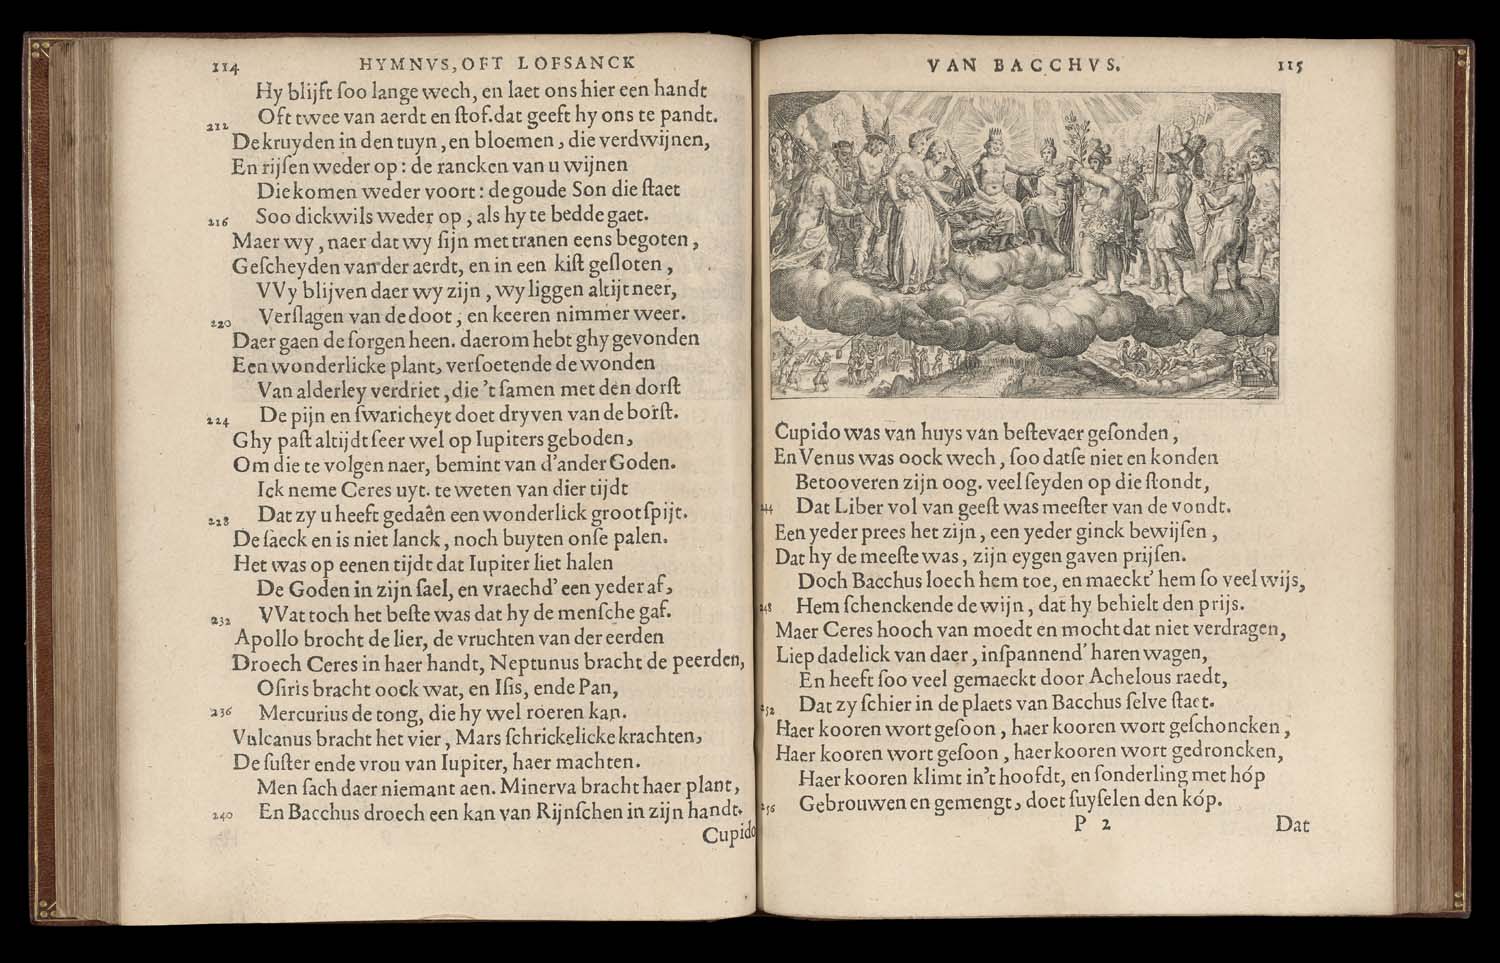 114 HYMNVS, OFT LOFSANCK
Hy blijft ſoo lange wech, en laet ons hier een handt
Oft twee van aerdt en ſtof. dat geeft hy ons te pandt.
212 De kruyden in den tuyn, en bloemen, die verdwijnen,
En rijſen weder op: de rancken van u wijnen
Die komen weder voort: de goude Son die ſtaet
216 Soo dickwils weder op, als hy te bedde gaet.
Maer wy, naer dat wy ſijn met tranen eens begoten,
Geſcheyden van der aerdt, en in een kiſt geſloten,
VVy blijven daer wy zijn, wy liggen altijt neer,
220 Verſlagen van de doot, en keeren nimmer weer.
Daer gaen de ſorgen heen. daerom hebt ghy gevonden
Een wonderlicke plant, verſoetende de wonden
Van alderley verdriet, die 't ſamen met den dorſt
224 De pijn en ſwaricheyt doet dryven van de borſt.
Ghy paſt altijdt ſeer wel op Iupiters geboden,
Om die te volgen naer, bemint van d'ander Goden.
Ick neme Ceres uyt. te weten van dier tijdt
228 Dat zy u heeft gedaên een wonderlick groot ſpijt.
De ſaeck en is niet lanck, noch buyten onſe palen.
Het was op eenen tijdt dat Iupiter liet halen
De Goden in zijn ſael, en vraechd' een yeder af,
232 VVat toch het beſte was dat hy de menſche gaf.
Apollo brocht de lier, de vruchten van der eerden
Droech Ceres in haer handt, Neptunus bracht de peerden,
Oſiris bracht oock wat, en Iſis, ende Pan,
236 Mercurius de tong, die hy wel roeren kan.
Vulcanus bracht het vier, Mars ſchrickelicke krachten,
De ſuſter ende vrou van Iupiter, haer machten.
Men ſach daer niemant aen. Minerva bracht haer plant,
240 En Bacchus droech een kan van Rijnſchen in zijn handt.
Cupido
VAN BACCHVS. 115
Cupido was van huys van beſtevaer geſonden,
En Venus was oock wech, ſoo datſe niet en konden
Betooveren zijn oog. veel ſeyden op die ſtondt,
244 Dat Liber vol van geeſt was meeſter van de vondt.
Een yeder prees het zijn, een yeder ginck bewijſen,
Dat hy de meeſte was, zijn eygen gaven prijſen.
Doch Bacchus loech hem toe, en maeckt' hem ſo veel wijs,
248 Hem ſchenckende de wijn, dat hy behielt den prijs.
Maer Ceres hooch van moedt en mocht dat niet verdragen,
Liep dadelick van daer, inſpannend' haren wagen,
En heeft ſoo veel gemaeckt door Achelous raedt,
252 Dat zy ſchier in de plaets van Bacchus ſelve ſtaet.
Haer kooren wort geſoon, haer kooren wort geſchoncken,
Haer kooren wort geſoon, haer kooren wort gedroncken,
Haer kooren klimt in't hoofdt, en ſonderling met hóp
256 Gebrouwen en gemengt, doet ſuyſelen den kóp.
P 2 Dat